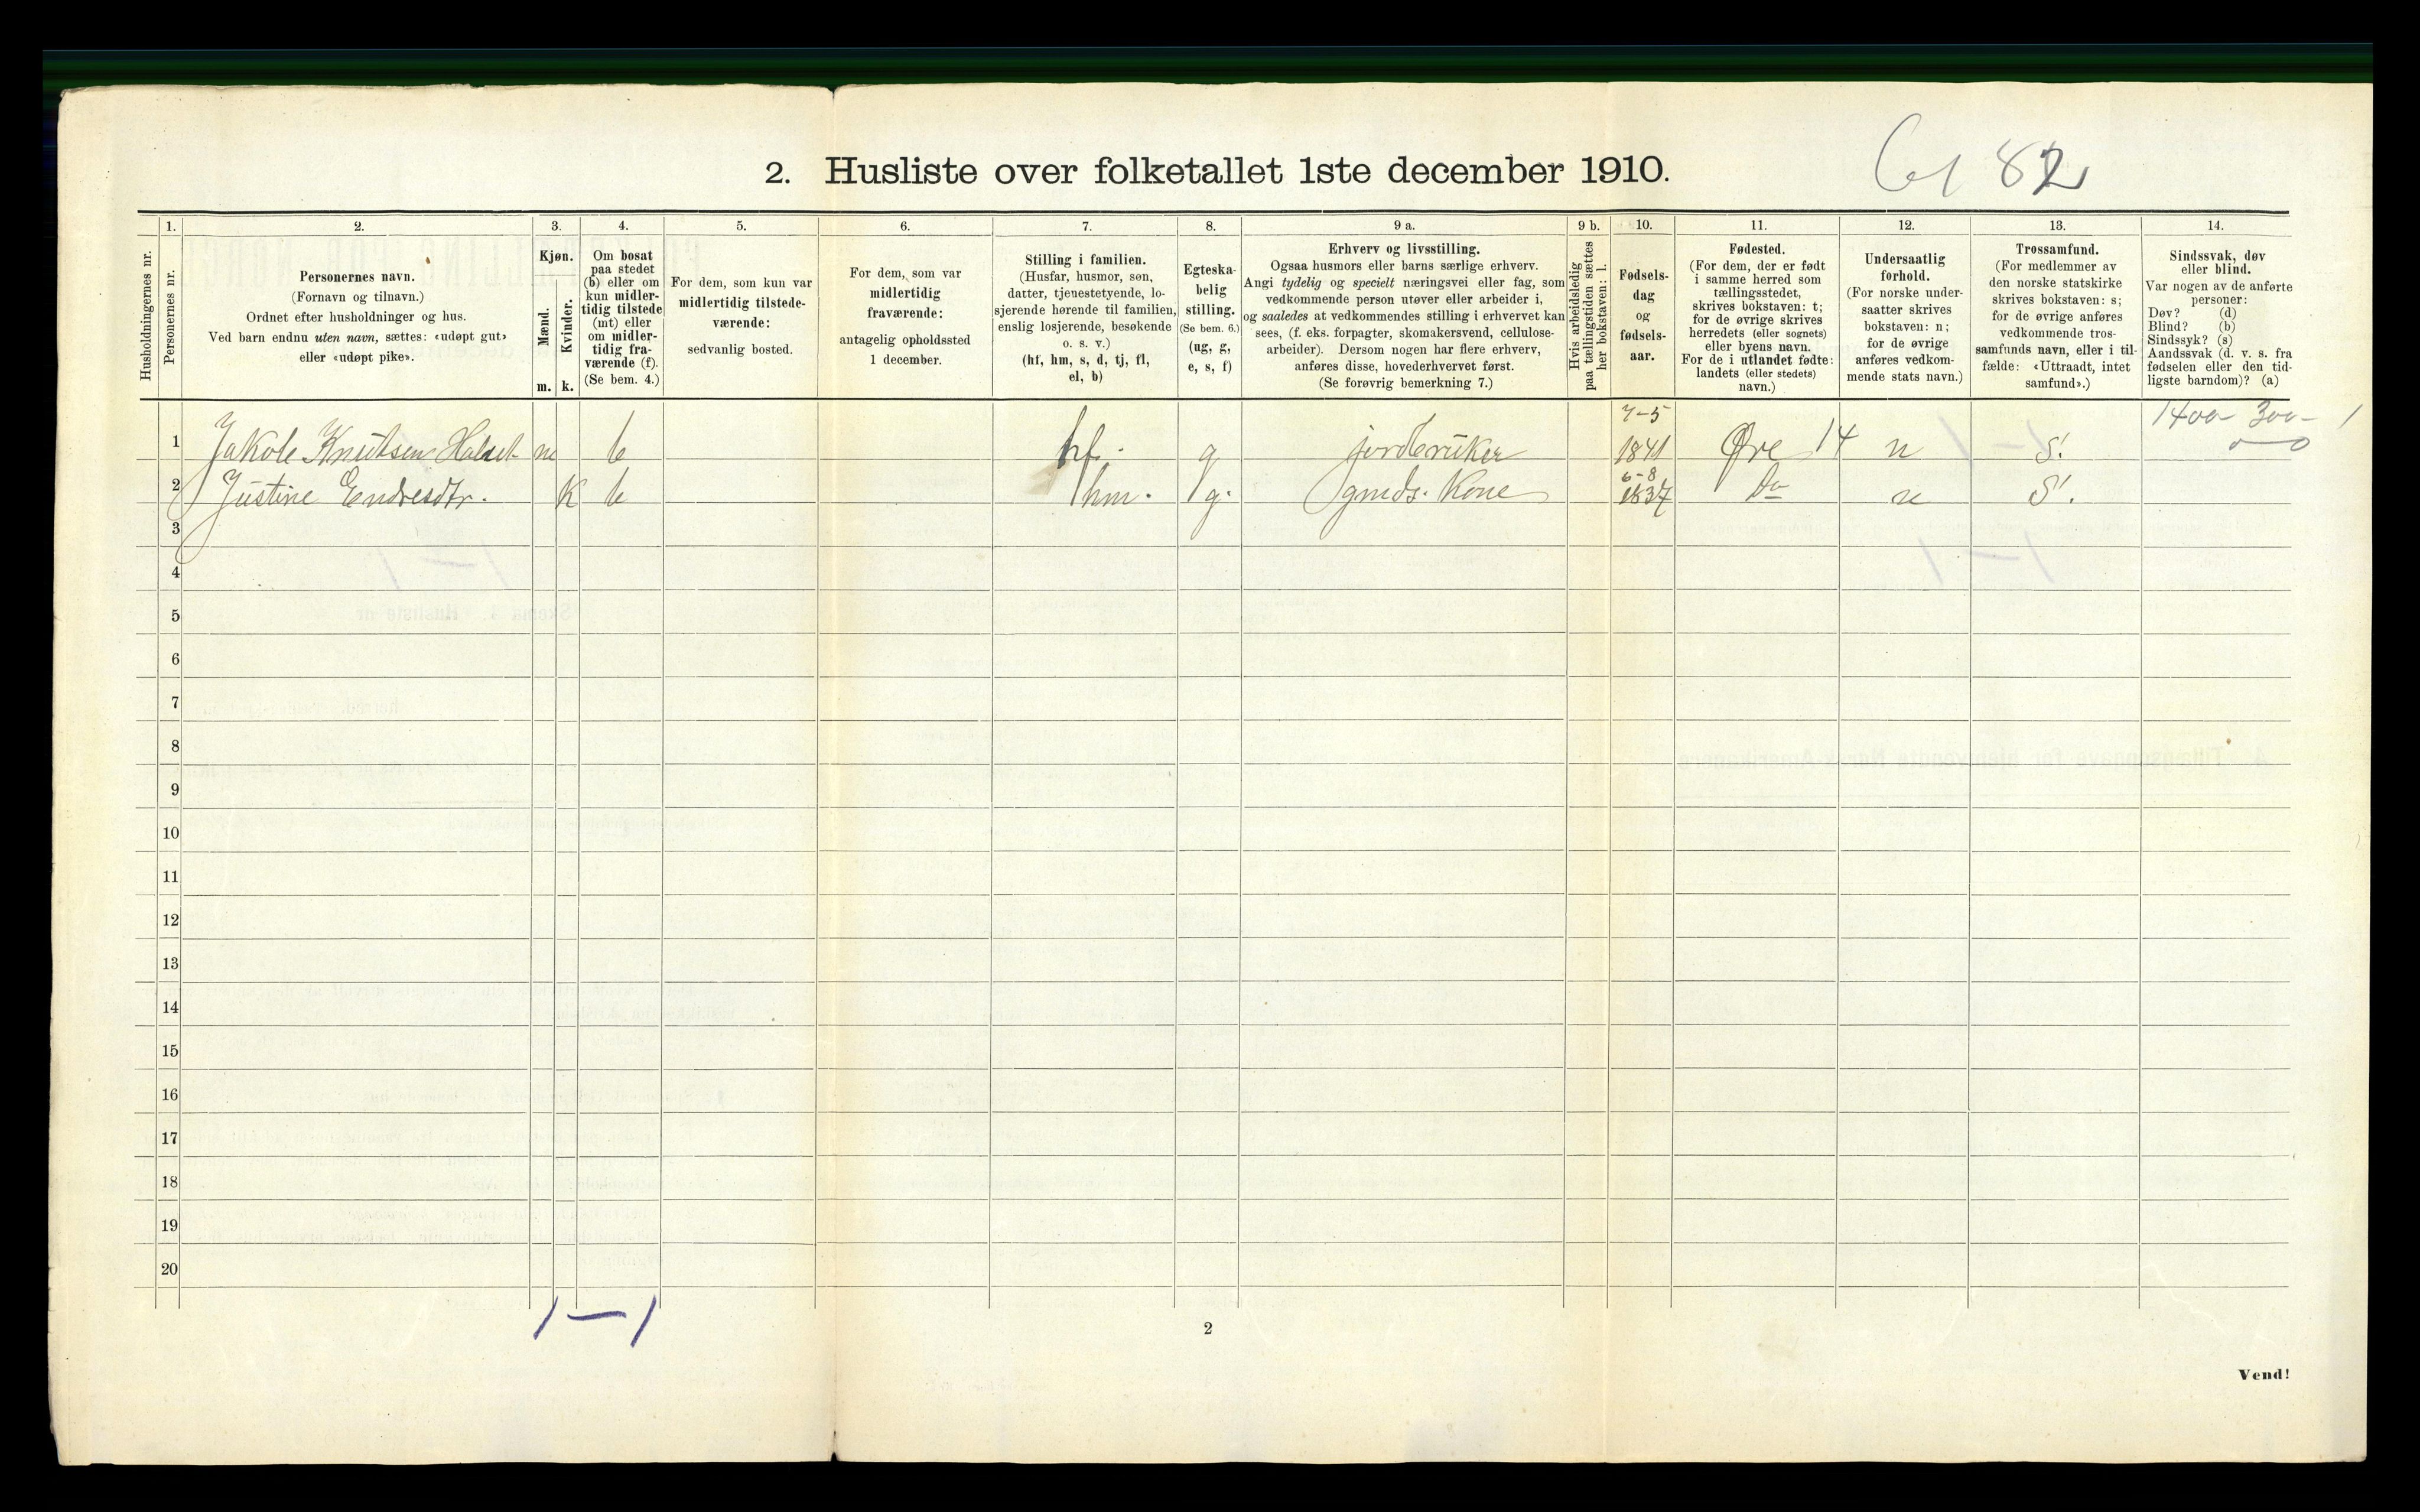 82
2. Husliste over folketallet 1ste december 1910.
1. 2. 3. 4. 5. 6. 7. 8. 9 a. 9 b. 10. 11. 12. 13. 14.
Husholdningernes nr.
Personernes nr.
Personernes navn.
(Fornavn og tilnavn.)
Ordnet efter husholdninger og hus.
Ved barn endnu uten navn, sættes: «udøpt gut»
eller «udøpt pike».
Kjøn.
Mænd.
Kvinder.
m. k.
Om bosat
paa stedet
(b) eller om
kun midler-
tidig tilstede
(mt) eller
om midler-
tidig fra-
værende (f).
(Se bem. 4.)
For dem, som kun var
midlertidig tilstede-
værende:
sedvanlig bosted.
For dem, som var
midlertidig
fraværende:
antagelig opholdssted
1 december.
Stilling i familien.
(Husfar, husmor, søn,
datter, tjenestetyende, lo-
sjerende hørende til familien,
enslig losjerende, besøkende
o. s. v.)
(hf, hm, s, d, tj, fl,
el, b)
Egteska-
belig
stilling.
(Se bem. 6.)
(ug, g,
e, s, f)
Erhverv og livsstilling.
Ogsaa husmors eller barns særlige erhverv.
Angi tydelig og specielt næringsvei eller fag, som
vedkommende person utøver eller arbeider i,
og saaledes at vedkommendes stilling i erhvervet kan
sees, (f. eks. forpagter, skomakersvend, cellulose-
arbeider). Dersom nogen har flere erhverv,
anføres disse, hovederhvervet først.
(Se forøvrig bemerkning 7.)
Hvis arbeidsledig
paa tællingstiden sættes
her bokstaven: l.
Fødsels-
dag
og
fødsels-
aar.
Fødested.
(For dem, der er født
i samme herred som
tællingsstedet,
skrives bokstaven: t;
for de øvrige skrives
herredets (eller sognets)
eller byens navn.
For de i utlandet fødte:
landets (eller stedets)
navn.)
Undersaatlig
forhold.
(For norske under-
saatter skrives
bokstaven: n;
for de øvrige
anføres vedkom-
mende stats navn.)
Trossamfund.
(For medlemmer av
den norske statskirke
skrives bokstaven: s;
for de øvrige anføres
vedkommende tros-
samfunds navn, eller i til-
fælde: «Uttraadt, intet
samfund».)
Sindssvak, døv
eller blind.
Var nogen av de anførte
personer:
Døv? (d)
Blind? (b)
Sindssyk? (s)
Aandssvak (d. v. s. fra
fødselen eller den tid-
ligste barndom)? (a)
1400- 300- 1
0 — 0
1 Jakob Knutsen Halset m b hf. g jordbruker 7-5 1841 Øre 14 n S.
2 Justine Endresdtr. K b hm. g. gmds. Kone 6-8 1837 Do n S.
3
4
5
6
7
8
9
10
11
12
13
14
15
16
17
18
19
20
1 — 1
2
Vend!